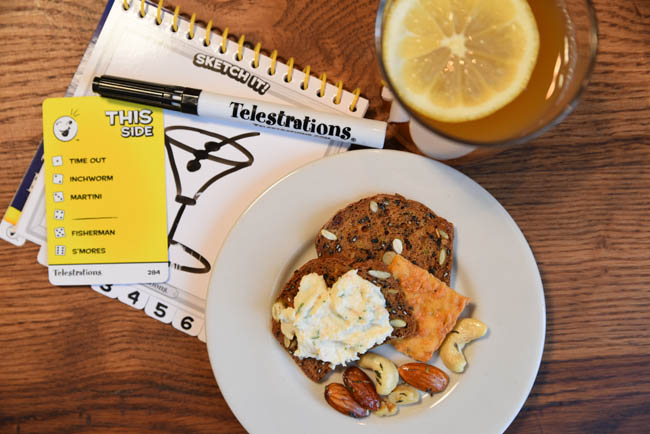 SKETCH IT!
Telestrations
THIS
SIDE
TIME OUT
INCHWORM
MARTINI
FISHERMAN
S'MORES
Telestrations 284
3 4 5 6